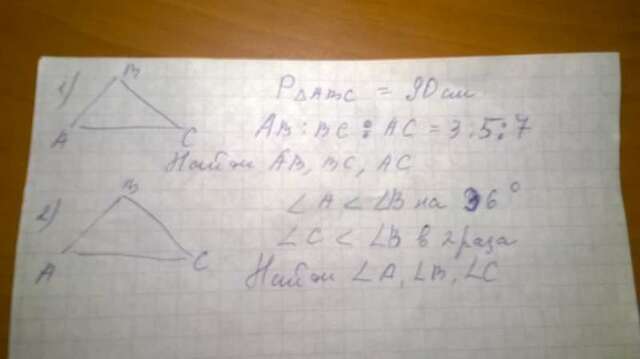 1)
B
A C
P△ABC = 90 см
AB : BC : AC = 3 : 5 : 7
Найти AB, BC, AC
2)
B
A C
∠A < ∠B на 36°
∠C < ∠B в 2 раза
Найти ∠A, ∠B, ∠C